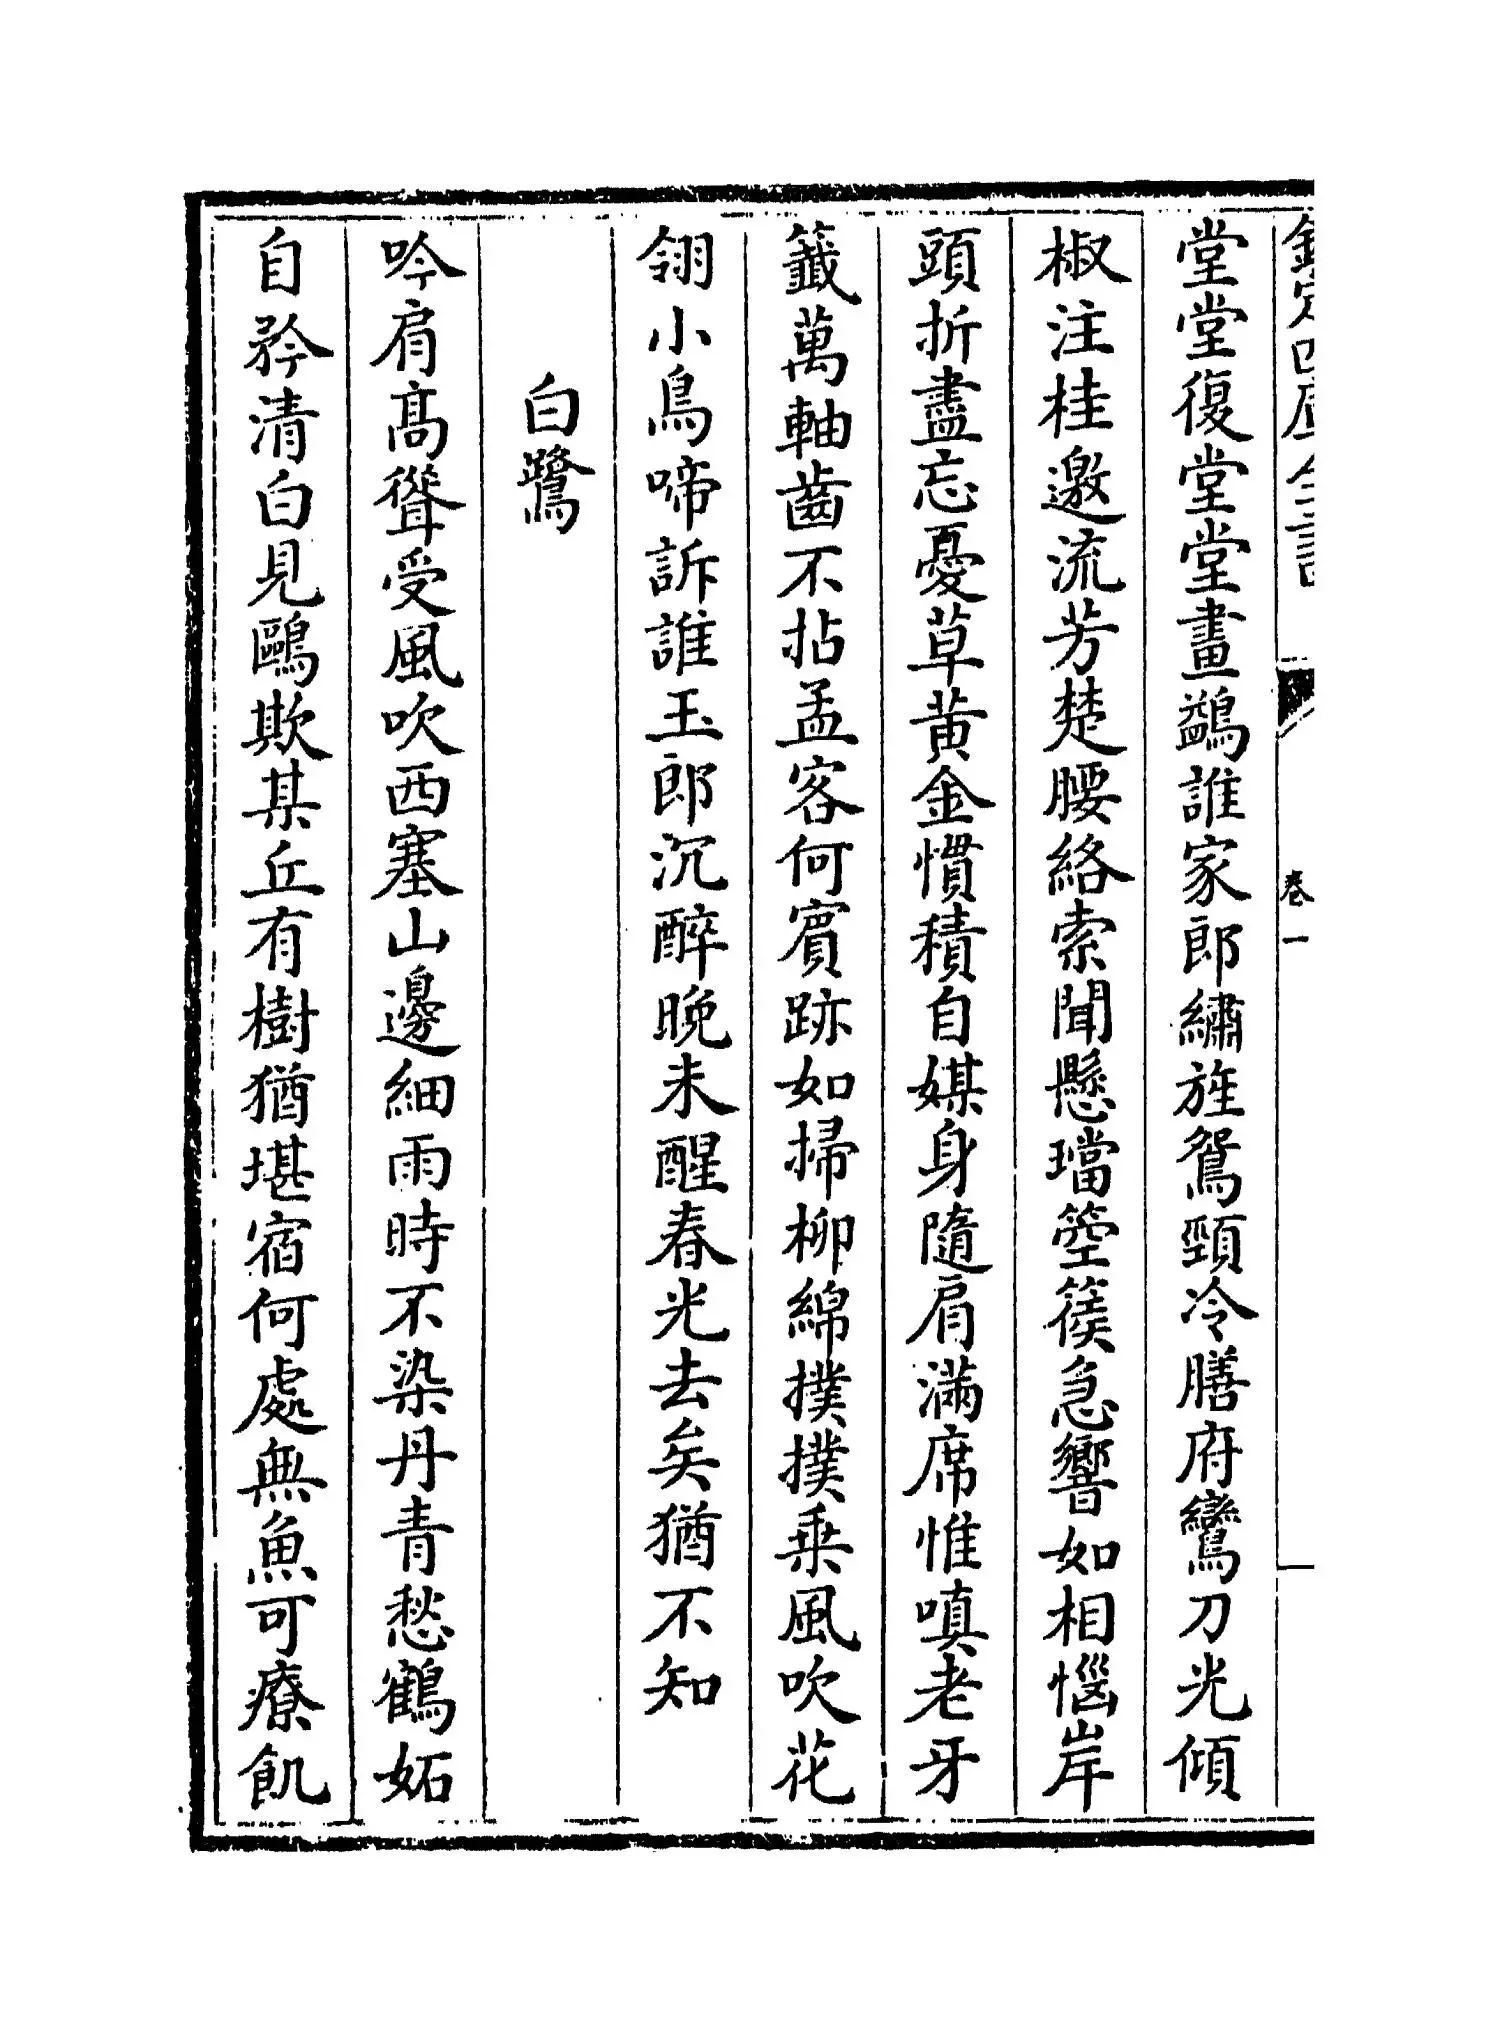 欽定四庫全書
卷一
堂堂復堂堂畫鷁誰家郎繡旌鴛頸冷膳府鸞刀光傾
椒注桂邀流芳楚腰絡索聞懸璫箜篌急響如相惱岸
頭折盡忘憂草黃金慣積自媒身隨肩滿席惟嗔老牙
籤萬軸齒不拈孟客何賓跡如掃柳綿撲撲乗風吹花
翎小鳥啼訴誰玉郎沉醉晚未醒春光去矣猶不知
白鷺
吟肩髙聳受風吹西塞山邊細雨時不染丹青愁鶴妬
自矜清白見鷗欺某丘有樹猶堪宿何處無魚可療飢